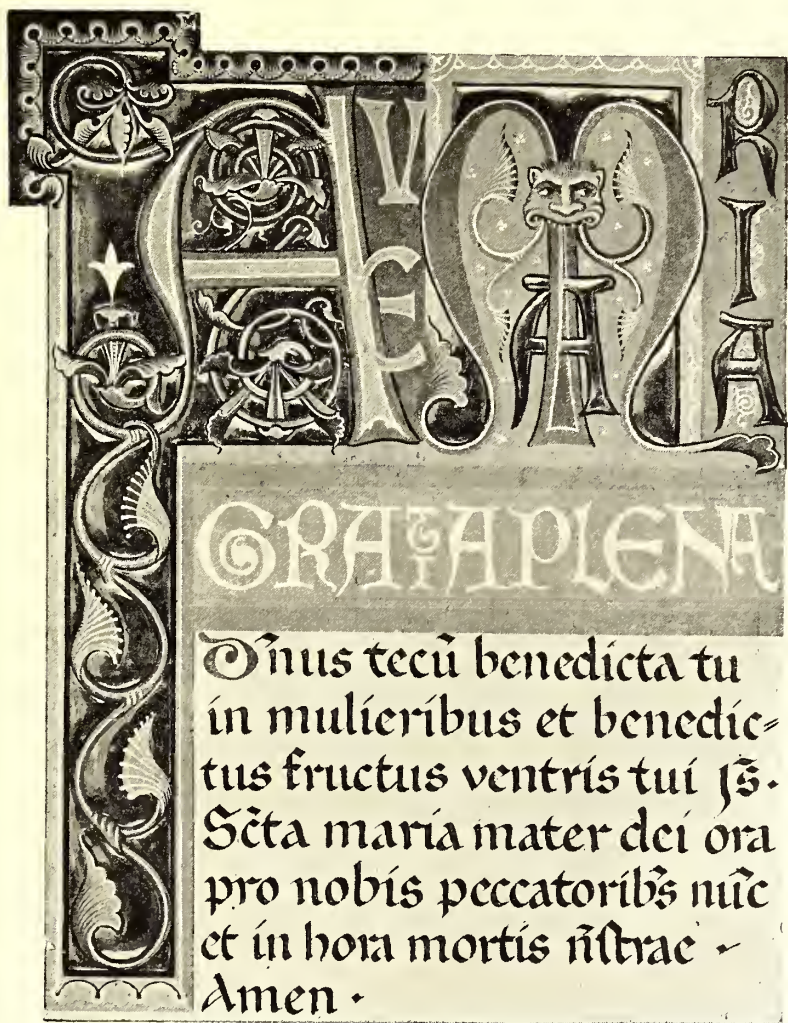 AVE MARIA
GRATIA PLENA
Dn̄us tecū benedicta tu
in mulieribus et benedic⸗
tus fructus ventris tui Js̄.
Sc̄ta maria mater dei ora
pro nobis peccatorib̄s nūc
et in hora mortis n̄strae
Amen.